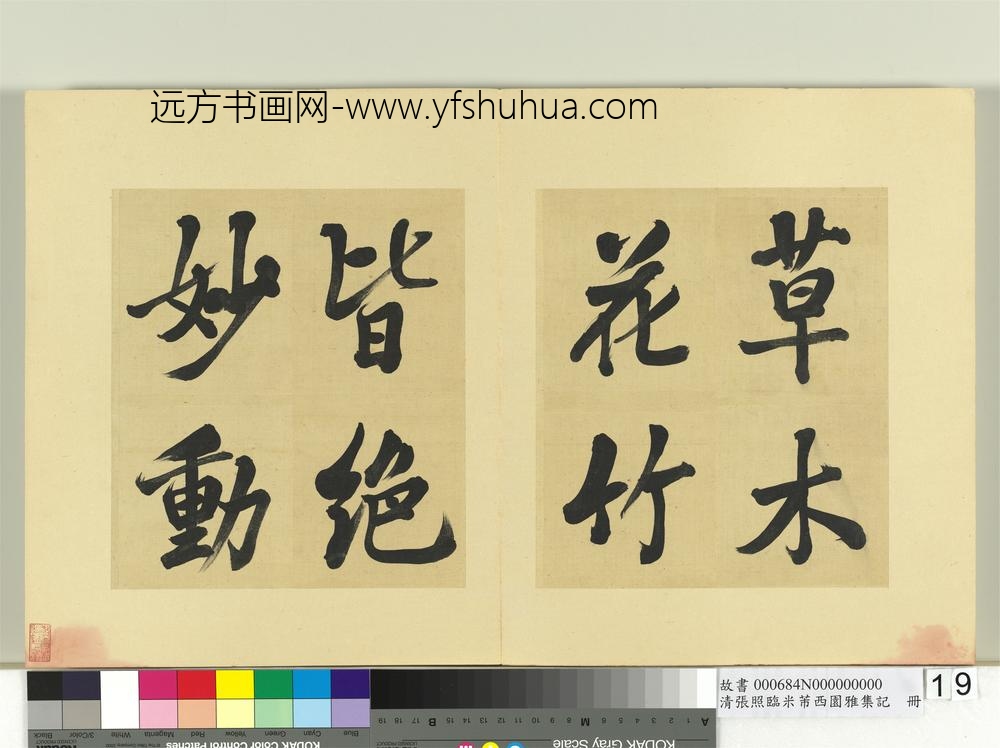 远方书画网-www.yfshuhua.com
草木
花竹
皆绝
妙動
故書 000684N000000000
清張照臨米芾西園雅集記 冊
19
KODAK Color Control Patches
Blue Cyan Green Yellow Red Magenta White 3/Color Black
KODAK Gray Scale
A 1 2 3 4 5 6 M 8 9 10 11 12 13 14 15 B 17 18 19